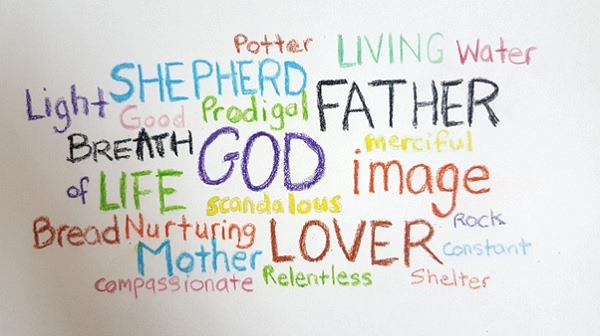 Potter LIVING Water
Light SHEPHERD
Good Prodigal FATHER
BREATH GOD merciful
of LIFE image
scandalous
Bread Nurturing LOVER Rock
Mother constant
compassionate Relentless Shelter